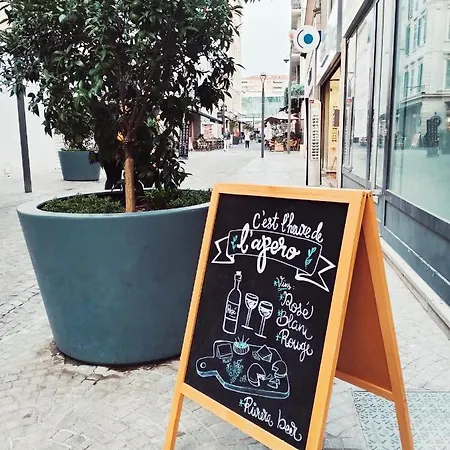 C'est l'heure de
l'apero
Vins:
Rosé
Blanc
Rouge